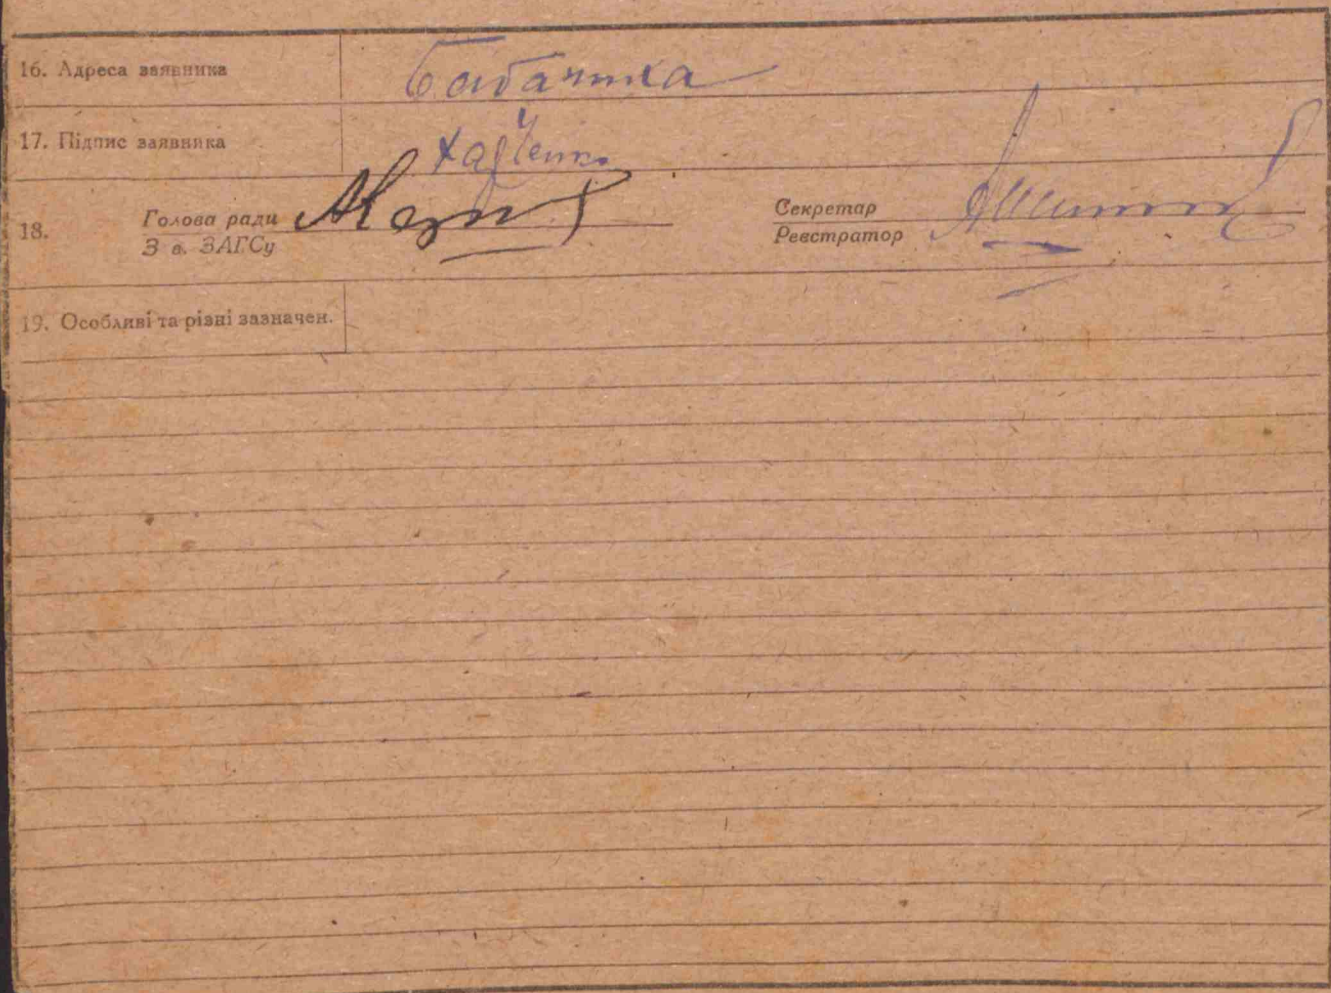 16. Адреса заявника Бабанка
17. Підпис заявника
18. Голова ради
З в. ЗАГСу
Секретар
Реєстратор
19. Особливі та різні зазначен.